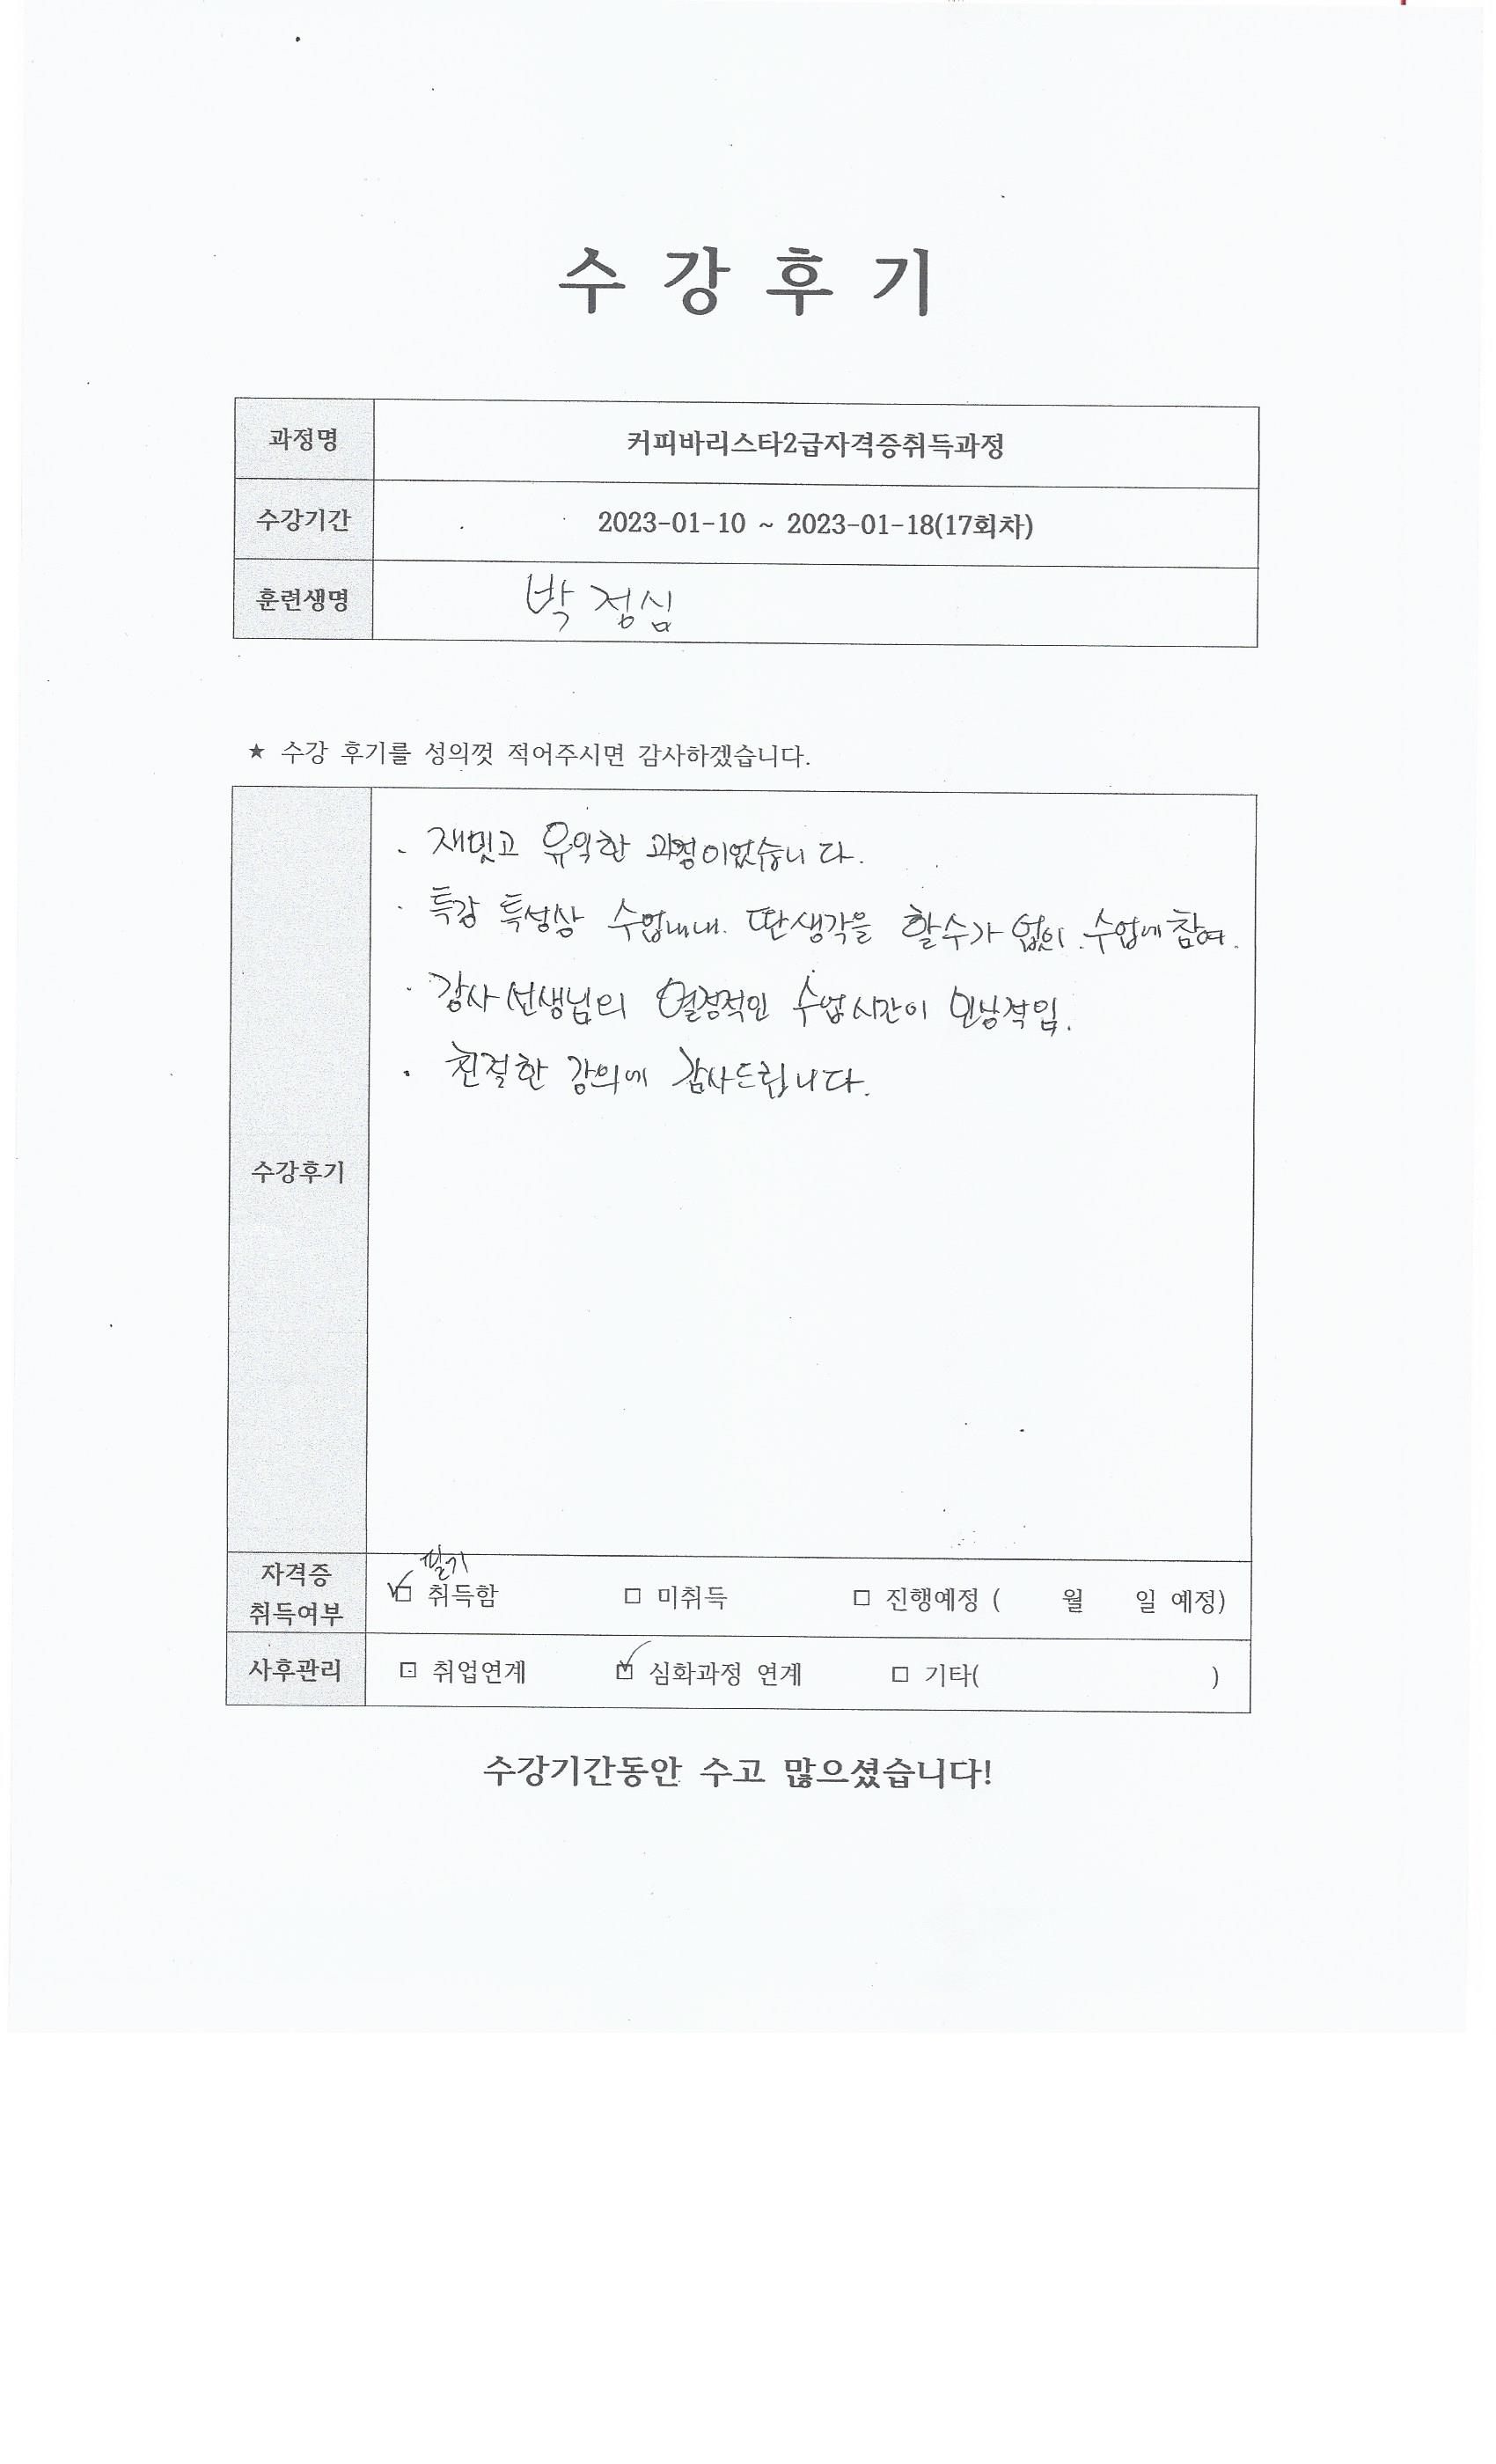 수 강 후 기
과정명 커피바리스타2급자격증취득과정
수강기간 2023-01-10 ~ 2023-01-18(17회차)
훈련생명 박 점심
★ 수강 후기를 성의껏 적어주시면 감사하겠습니다.
수강후기
· 재밋고 유익한 과정이었습니다.
· 특강 특성상 수업내내 딴생각을 할수가 없이 수업에 참여.
· 강사선생님의 열정적인 수업시간이 인상적임.
· 친절한 강의에 감사드립니다.
필기
자격증 취득여부 ☑ 취득함 □ 미취득 □ 진행예정 ( 월 일 예정)
사후관리 □ 취업연계 ☑ 심화과정 연계 □ 기타( )
수강기간동안 수고 많으셨습니다!